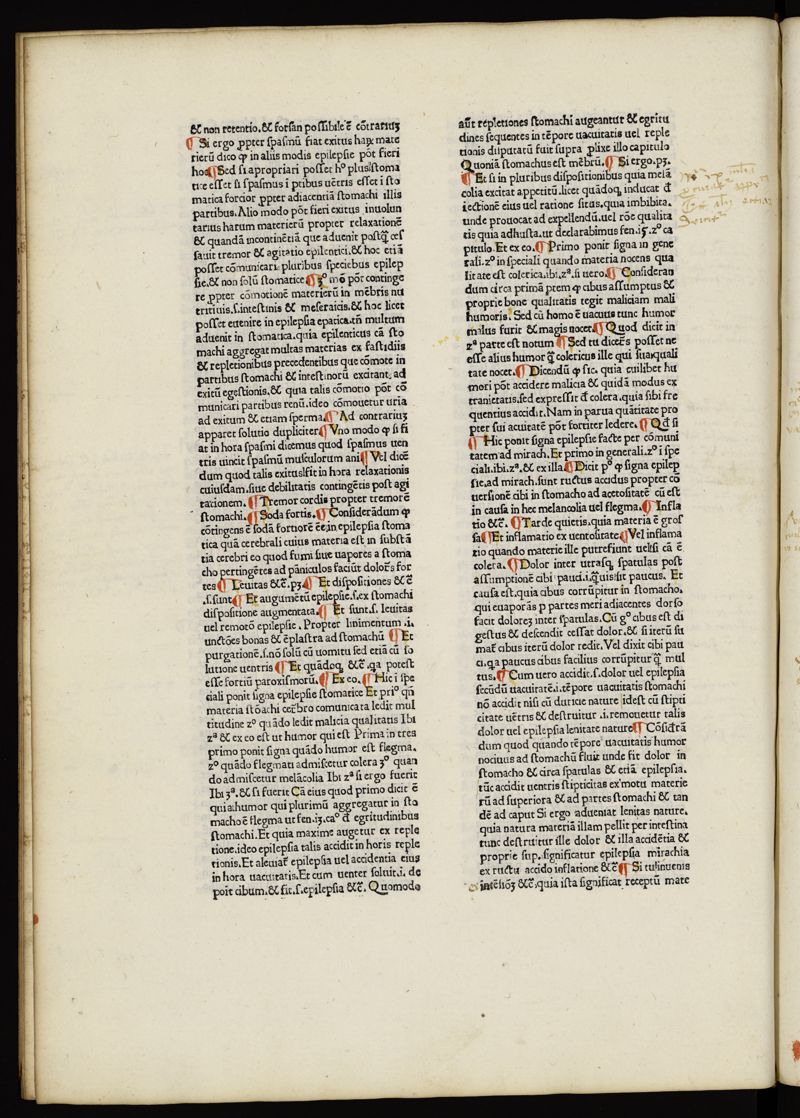 & non retentio.& forsan possibile ē cōtrariuꝫ
¶ Si ergo ꝓpter spasmū fiat exitus haꝝ mate
rierū dico ꝙ in aliis modis epilepsie pōt fieri
hoc¶Sed si apropriari posset hº plus stoma
tice esset si spasmus ī ptibus uētris esset ī sto
matica forcior ꝓpter adiacentiā stomachi illis
partibus. Alio modo pōt fieri exitus inuolun
tarius harum materierū propter relaxationē
& quandā incontinētiā que aduenit postꝙ̄ ces
sauit tremor & agitatio epilentici.& hoc etiā
posset cōmunicari pluribus speciebus epilep
sie.& non solū stomatice¶ 3º mō pōt continge
re ꝓpter cōmotionē materierū in mēbris nu
tritiuis.s.intestinis & meseraicis.& hoc licet
posset euenire in epilepsia epatica.tn̄ multum
aduenit in stomatica.quia epilenticus cā sto
machi aggregat multas materias ex fastidiis
& repletionibus precedentibus que cōmote in
partibus stomachi & intestinorū excitant, ad
exitū egestionis.& quia talis cōmotio pōt cō
municari partibus renū.ideo cōmouetur uria
ad exitum & etiam sperma.¶ Ad contrariuꝫ
apparet solutio dupliciter¶Vno modo ꝙ si fi
at in hora spasmi dicemus quod spasmus uen
tris uincit spasmū musculorum ani¶Vel dicē
dum quod talis exitus fit in hora relaxationis
cuiusdam.siue debilitatis contingētis post agi
tationem.¶Tremor cordis propter tremorē
stomachi.¶Soda fortis.¶Considerādum ꝙ
cōtingens ē sodā fortiorē ēe in epilepsia stoma
tica quā cerebrali cuius materia est in substā
tia cerebri eo quod fumi siue uapores a stoma
cho pertingētes ad pāniculos faciūt dolores for
tes¶Leuitas &c̄.pꝫ.¶Et dispositiones &c̄
.s.sunt¶ Et augumētū epilepsie.s.ex stomachi
dispositione augmentata.¶ Et sunt.s. leuitas
uel remotō epilepsie. Propter linimentum .i.
unctōes bonas & ēplastra ad stomachū¶ Et
purgationē.s.nō solū cū uomitu sed etiā cū so
lutione uentris¶Et quādoqꝫ &c̄.qa potest
esse fortiū paroxismorū.¶Ex eo.¶Hic ī spe
ciali ponit signa epilepsie stomatice Et priº qn̄
materia stōachi cerēbro comunicata ledit mul
titudine 2º quādo ledit malicia qualitatis Ibi
2ª & ex eo est ut humor qui est Prima in tres
primo ponit signa quādo humor est flegma.
2º quādo flegmati admiscetur colera 3º quan
do admiscetur melācolia Ibi 2ª si ergo fuerit
Ibi 3ª.& si fuerit Cā eius quod primo dicit ē
quia humor qui plurimū aggregatur in sto
macho ē flegma ut fen.13.caº đ egritudinibus
stomachi.Et quia maxime augetur ex reple
tione.ideo epilepsia talis accidit in horis reple
tionis.Et aleuiat epilepsia uel accidentia eius
in hora uacuitatis.Et cum uenter soluit.i. de
poit cibum.& fit.s.epilepsia &c̄. Quomodo
aūt repletiones stomachi augeantur & egritu
dines sequentes in tēpore uacuitatis uel reple
tionis disputatū fuit supra ꝓlixe illo capitulo
Quoniā stomachus est mēbrū.¶ Si ergo.pꝫ.
¶Et si in pluribus dispositionibus quia melā
colia excitat appetitū.licet quādoqꝫ inducat đ
iectionē eius uel ratione situs.quia imbibita.
unde prouocat ad expellendū.uel rōe qualita
tis quia adhusta.ut declarabimus fen.13.2º ca
pitulo.Et ex eo.¶Primo ponit signa in gene
rali.2º in speciali quando materia nocens qua
litate est colerica.ibi.2ª.si uero.¶Consideran
dum circa primā ptem ꝙ cibus assumptus &
proprie bone qualitatis tegit maliciam mali
humoris. Sed cū homo ē uacuus tunc humor
malus furit & magis nocet.¶Quod dicit in
2ª parte est notum ¶Sed tu dicens posset ne
esse alius humor ꝙ̄ colericus ille qui sua quali
tate nocet.¶Dicendū ꝙ sic.quia cuilibet hu
mori pōt accidere malicia & quidā modus ex
tranietatis.sed expressit đ colera.quia sibi fre
quentius accidit.Nam in parua quātitate pro
pter sui acuitatē pōt fortiter ledere.¶Qđ si
¶Hic ponit signa epilepsie facte per cōmuni
tatem ad mirach.Et primo in generali.2º ī spe
ciali.ibi.2ª.& ex illa¶Dicit pº ꝙ signa epilep
sie.ad mirach.sunt ructus accidus propter cō
uersionē cibi in stomacho ad acetositatē cū est
in causa in hec melancolia uel flegma.¶Infla
tio &c̄.¶Tarde quietis.quia materia ē gros
sa¶Et inflamatio ex uentositate¶Vel inflama
tio quando materie ille putrefiunt uel si cā ē
colera.¶Dolor inter utrasqꝫ spatulas post
assumptionē cibi pauci.i.quis sit paucus. Et
causa est.quia cibus corrūpitur in stomacho.
qui euaporās p partes meri adiacentes dorso
facit dolorē inter spatulas.Cū gº cibus est di
gestus & descendit cessat dolor.& si iterū su
mat cibus iterū dolor redit.Vel dixit cibi pau
ci.qa paucus cibus facilius corrūpitur ꝙ̄ mul
tus.¶Cum uero accidit.s.dolor uel epilepsia
secūdū uacuitatē.i.tēpore uacuitatis stomachi
nō accidit nisi cū duricie nature idest cū stipti
citate uētris & destruitur .i.remouetur talis
dolor uel epilepsia lenitate nature¶Cōsiđra
dum quod quando tēpore uacuitatis humor
nociuus ad stomachū fluit unde fit dolor in
stomacho & circa spatulas & etiā epilepsia.
tūc accidit uentris stipticitas ex motu materie
rū ad superiora & ad partes stomachi & tan
dē ad caput Si ergo adueniat lenitas nature.
quia natura materiā illam pellit per intestina
tunc destruitur ille dolor & illa accidētia &
proprie sup. significatur epilepsia mirachia
ex ructu accido inflatione &c̄¶ Si tu inuenis
intēsioꝫ &c̄.quia ista significat receptū mate